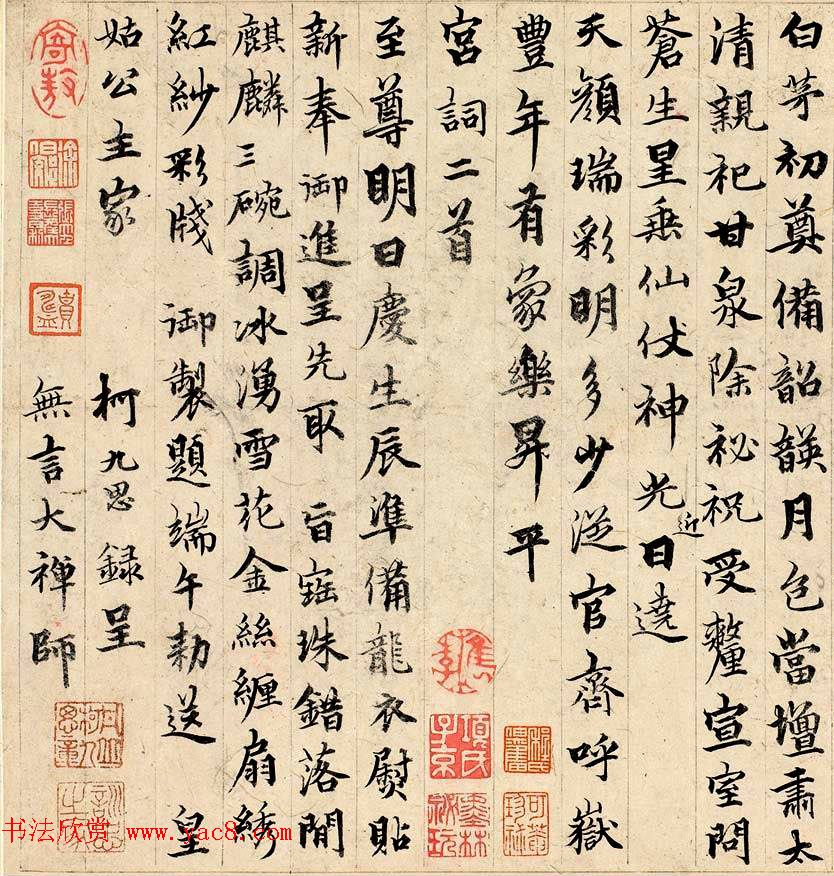 白茅初奠備韶韺月色當壇肅太
清親祀甘泉除祕祝受釐宣室問
蒼生星乘仙仗神光日遶
近
天顏瑞彩明多少從官齊呼嶽
豐年有象樂昇平
宮詞二首
至尊明日慶生辰準備龍衣熨貼
新奉御進呈先取 旨寶珠錯落間
麒麟三碗調冰湧雪花金絲纏扇綉
紅紗彩牋 御製題端午勅送 皇
姑公主家 柯九思錄呈
無言大禪師
項氏子京
墨林祕玩
书法欣赏 www.yac8.com